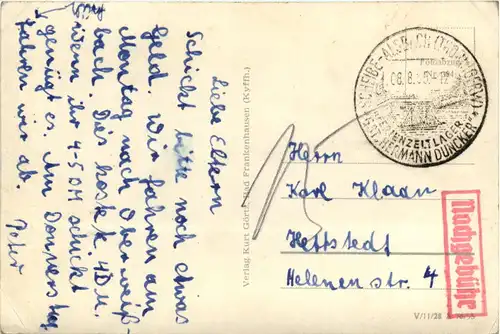 Liebe Eltern
Schickt bitte noch etwas
Geld. Wir fahren am
Montag nach Oberweiß-
bach. Das kostet 4 DM.
Wenn ihr 4-5 DM schickt
genügt es. Am Donnerstag
fahren wir ab.
Peter
Verlag Kurt Görtz, Bad Frankenhausen (Kyffh.)
SCHEIBE-ALSBACH (THÜR)
FERIENZELTLAGER
HERMANN DUNCKER
Herrn
Karl Klaan
Hettstedt
Helenen str. 4
Nachgebühr
V/11/28